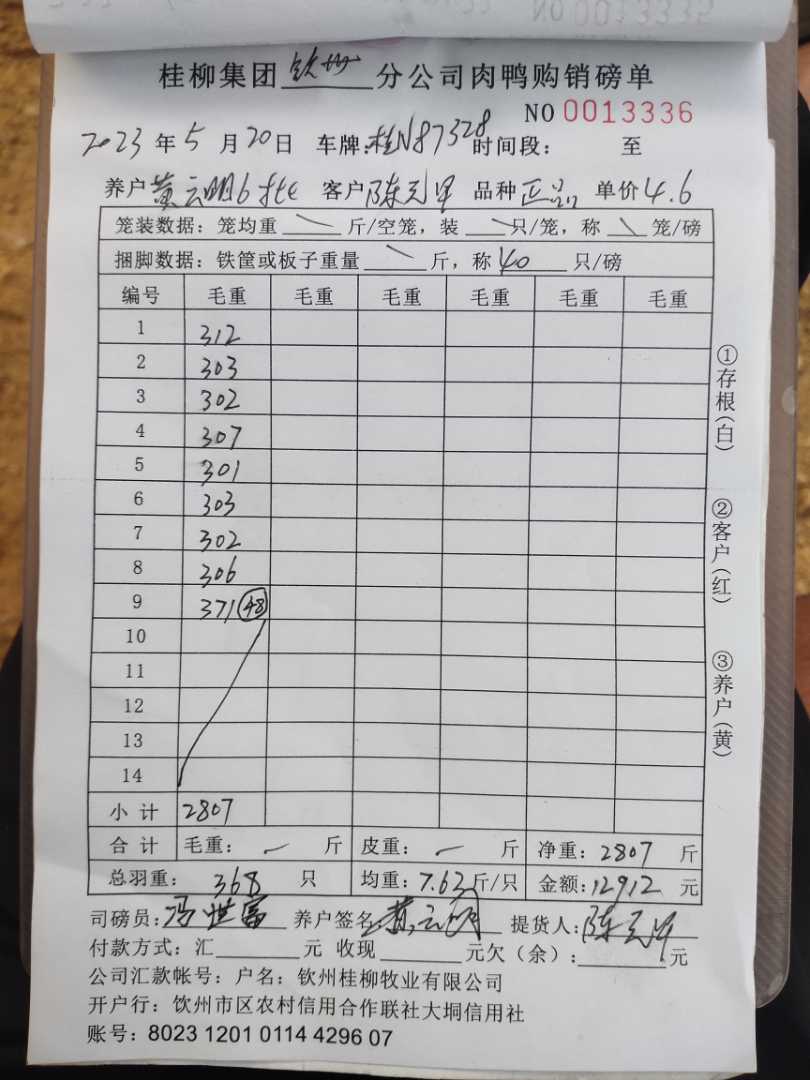 NO 0013335
桂柳集团 钦州 分公司肉鸭购销磅单
NO 0013336
2023 年 5 月 20 日 车牌:桂N87328 时间段: 至
养户 黄云明6批 客户 陈元军 品种 正品 单价 4.6
笼装数据:笼均重 斤/空笼,装 只/笼,称 笼/磅
捆脚数据:铁筐或板子重量 斤,称 40 只/磅
编号 毛重 毛重 毛重 毛重 毛重 毛重
1 312
2 303
3 302
4 307
5 301
6 303
7 302
8 306
9 371 48
10
11
12
13
14
小计 2807
合计 毛重: — 斤 皮重: — 斤 净重: 2807 斤
总羽重: 368 只 均重: 7.63 斤/只 金额: 12912 元
司磅员: 冯世富 养户签名 黄云明 提货人: 陈元军
付款方式:汇 元 收现 元欠(余): 元
公司汇款帐号:户名:钦州桂柳牧业有限公司
开户行:饮州市区农村信用合作联社大垌信用社
账号:8023 1201 0114 4296 07
①存根(白)
②客户(红)
③养户(黄)